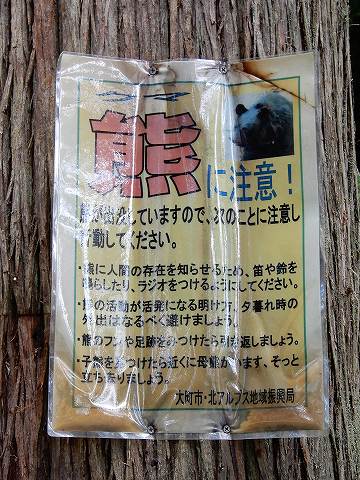 クマ
熊に注意！
熊が出没していますので、次のことに注意し
行動してください。
・熊に人間の存在を知らせるため、笛や鈴を
鳴らしたり、ラジオをつけるようにしてください。
・熊の活動が活発になる明け方、夕暮れ時の
外出はなるべく避けましょう。
・熊のフンや足跡をみつけたら引き返しましょう。
・子熊を見つけたら近くに母熊がいます、そっと
立ち去りましょう。
大町市・北アルプス地域振興局